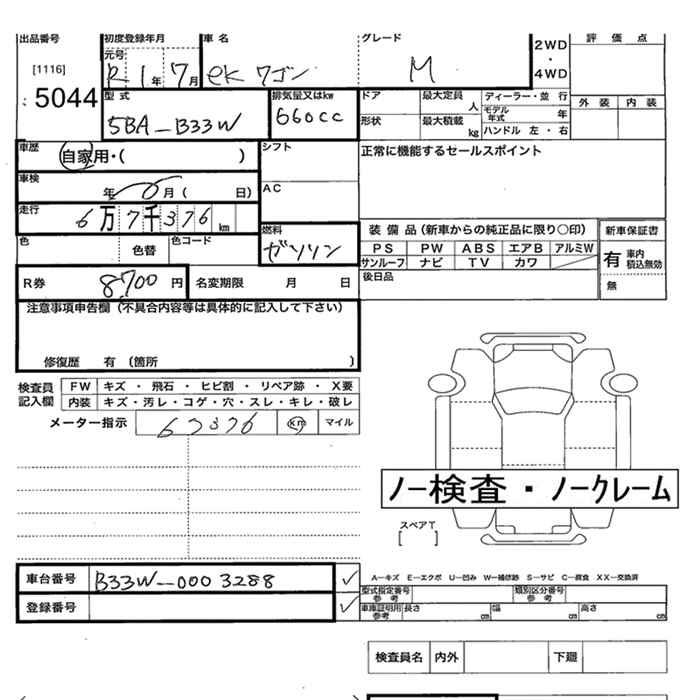 出品番号 初度登録年月 車名 グレード 評価点
元号 R 1年 7月 eK ワゴン M 2WD・4WD
[1116]
5044 型式 排気量又はkw ドア 最大定員 人 ディーラー・並行 外装 内装
5BA-B33W 660cc 形状 最大積載 kg モデル年式 年
ハンドル 左・右
車歴 自家用・( ) シフト 正常に機能するセールスポイント
車検 年 6月( 日) AC
走行 6万7千376 km
燃料 ガソリン 装備品(新車からの純正品に限り〇印) 新車保証書
色 色替 色コード PS PW ABS エアB アルミW 有 車内積込無効
サンルーフ ナビ TV カワ
R券 8,700円 名変期限 月 日 後日品 無
注意事項申告欄(不具合内容等は具体的に記入して下さい)
修復歴 有〔箇所 〕
検査員記入欄 FW キズ・飛石・ヒビ割・リペア跡・X要
内装 キズ・汚レ・コゲ・穴・スレ・キレ・破レ
メーター指示 67376 km マイル
ノー検査・ノークレーム
スペアT
[ ]
車台番号 B33W-0003288 ✓ A-キズ E-エクボ U-凹み W-補修跡 S-サビ C-腐食 XX-交換済
型式指定番号 参考 類別区分番号 参考
登録番号 ✓ 車庫証明用 参考 長さ cm 幅 cm 高さ cm
検査員名 内外 下廻